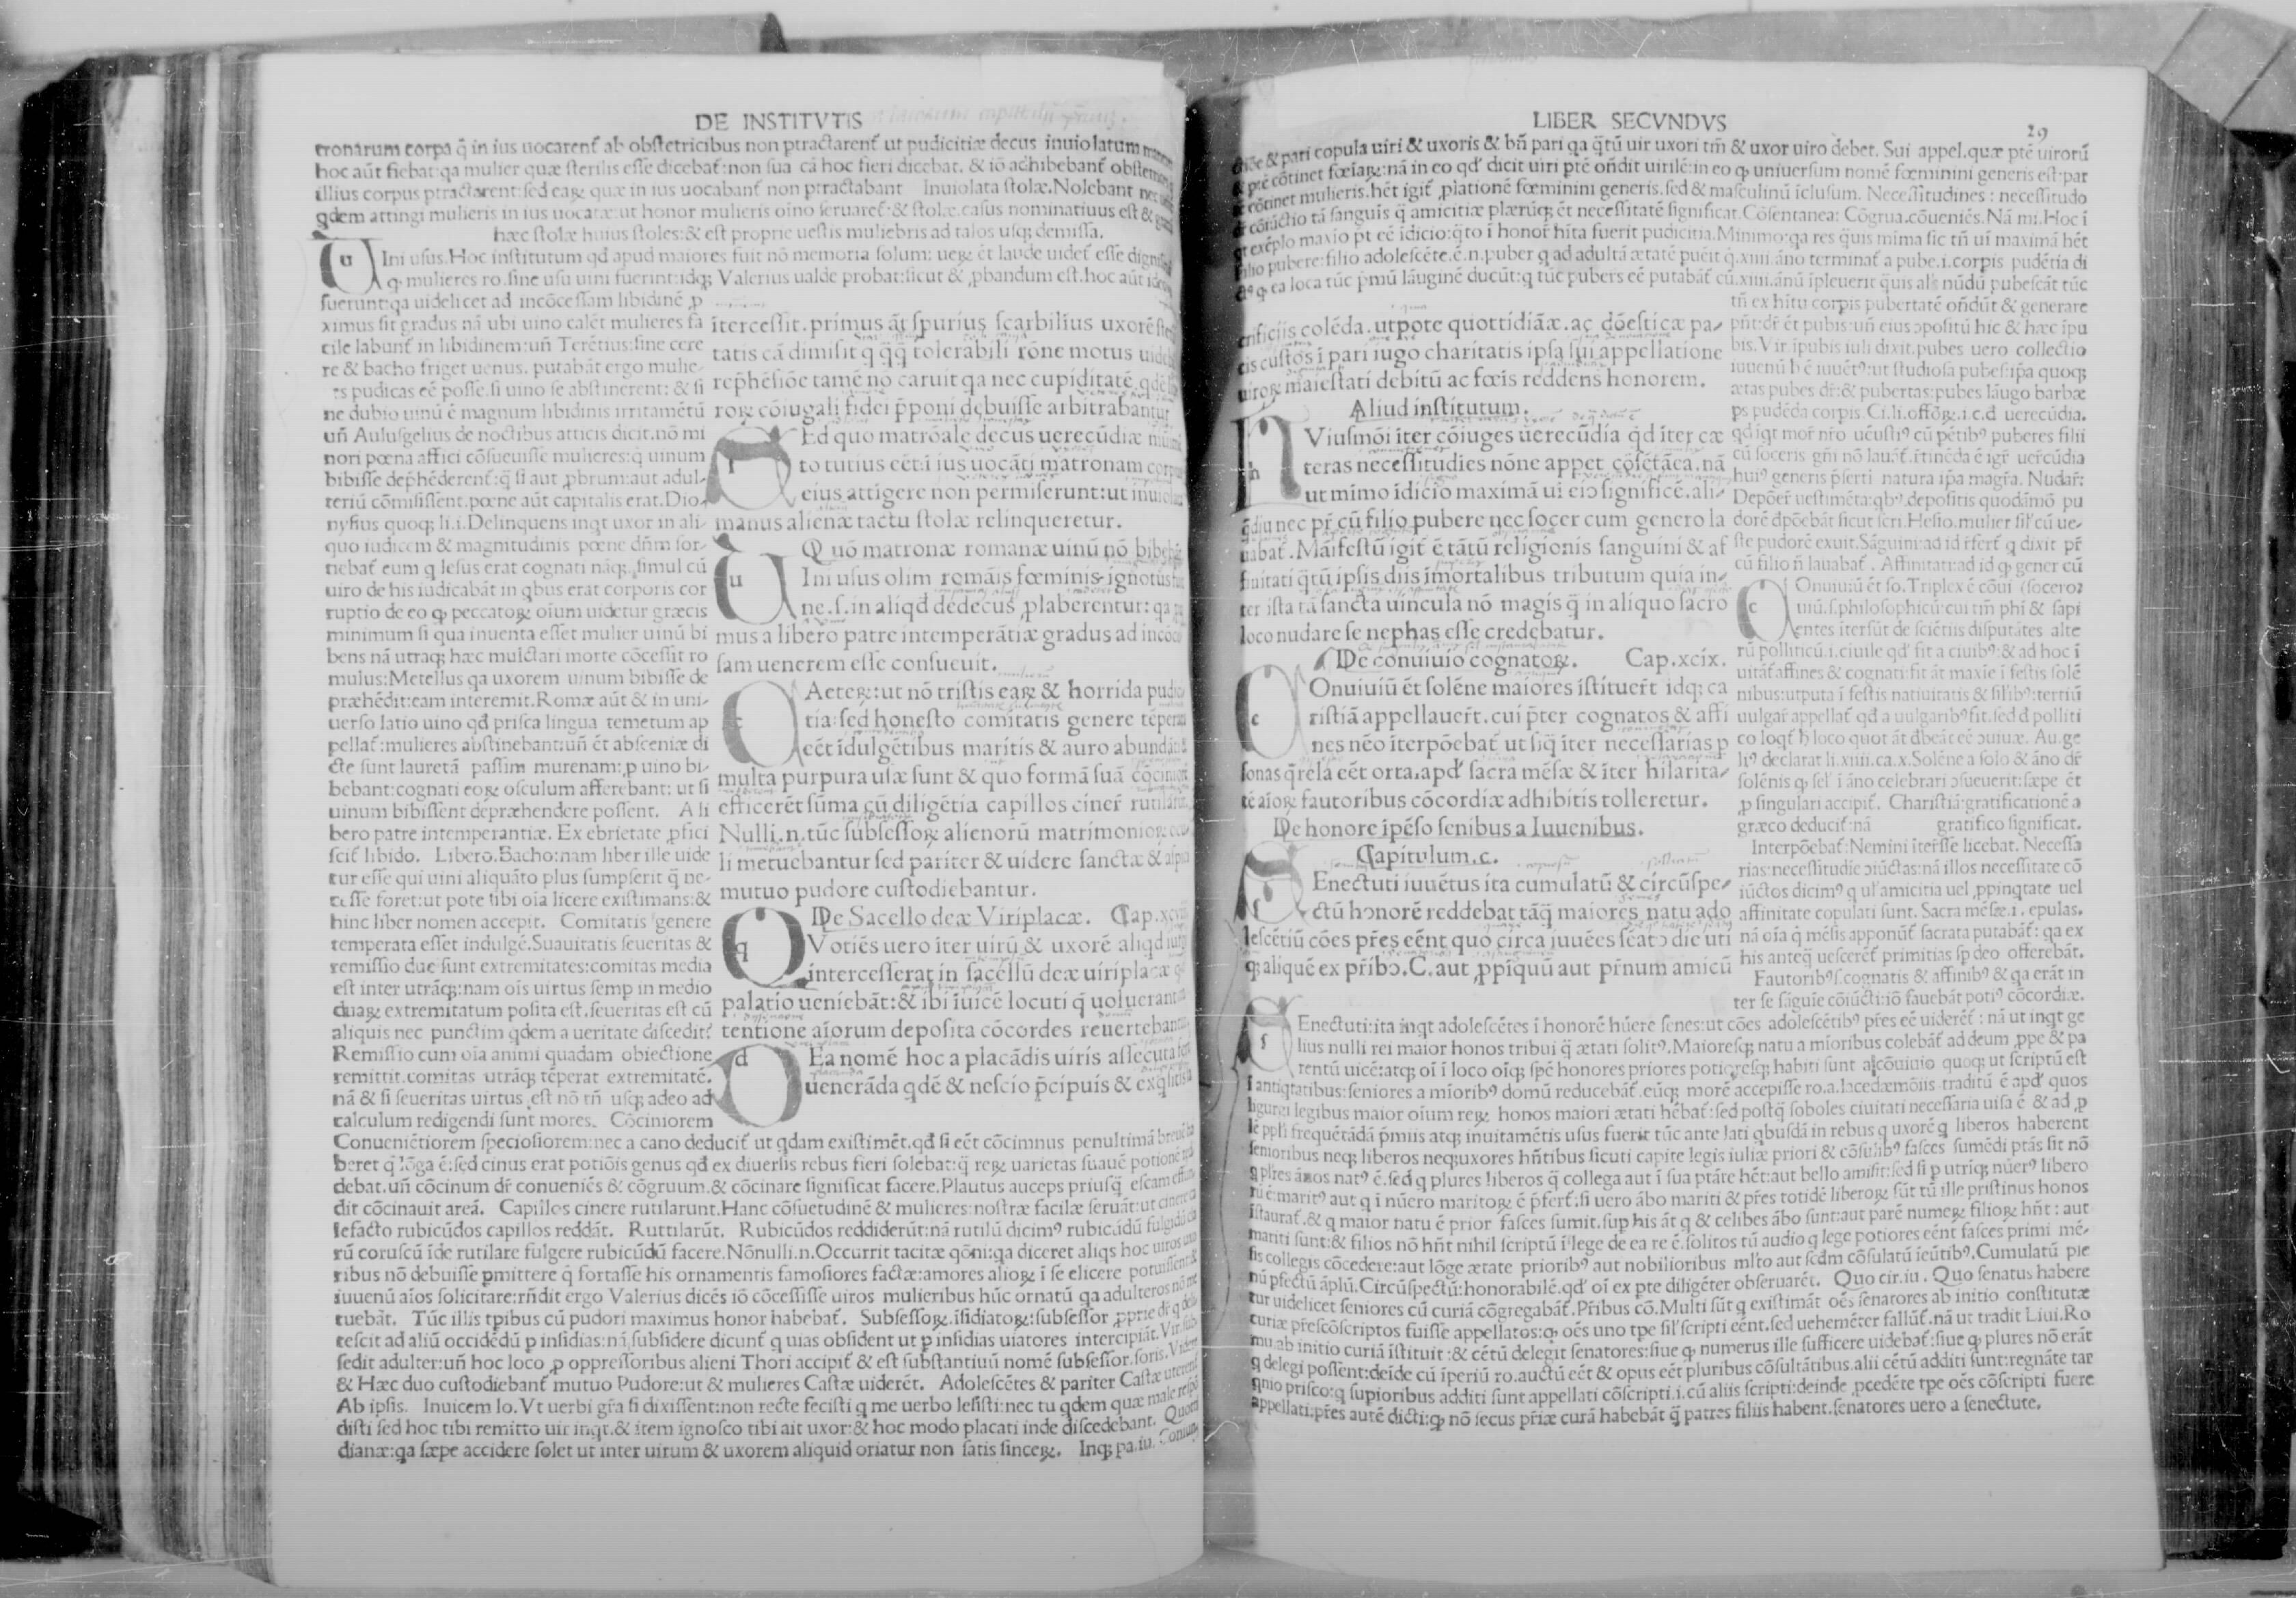 DE INSTITVTIS
tronarum corpa q̄ in ius uocarent̃ ab obſtetricibus non ptractarent̃ ut pudicitiæ decus inuiolatum
hoc aūt fiebat:qa mulier quæ ſterilis eſſe dicebat̃:non ſua cā hoc fieri dicebat. & iō adhibebant̃
illius corpus ptractarent:ſed eaꝝ quæ in ius uocabant̃ non ptractabant Inuiolata ſtolæ.Nolebant nec
qdem attingi mulieris in ius uocatæ:ut honor mulieris oīno ſeruaret̃:& ſtolæ.caſus nominatiuus eſt &
hæc ſtola huius ſtoles:& eſt proprie ueſtis muliebris ad talos uſqꝫ demiſſa.
u Ini uſus.Hoc inſtitutum qđ apud maiores fuit nō memoria ſolum: ueꝝ ēt laude uidet̃ eſſe
ꝙ mulieres ro.ſine uſu uini fuerint:idqꝫ Valerius ualde probat:ſicut & ꝓbandum eſt.hoc aūt
fuerunt:qa uidelicet ad incōceſſam libidinē ꝓ
ximus fit gradus nā ubi uino calēt mulieres fa
cile labunt̃ in libidinem:uñ Terētius:ſine cere
re & bacho friget uenus. putabāt ergo mulie-
es pudicas eē poſſe.ſi uino ſe abſtinerent: & ſi
ne dubio uinū ē magnum libidinis irritamētū
uñ Auluſgelius de noctibus atticis dicit.nō mi
nori pœna affici cōſueuiſſe mulieres:q̄ uinum
bibiſſe dep̄hēderent̃:q̄ ſi aut ꝓbrum:aut adul-
teriū cōmiſiſſent.pœne aūt capitalis erat.Dio,
nyſius quoqꝫ li.i.Delinquens inqt uxor in ali-
quo iudicem & magnitudinis pœne dñm ſor-
tiebat̃ eum q leſus erat cognati nāqꝫ ſimul cū
uiro de his iudicabāt in qbus erat corporis cor
ruptio de eo ꝙ peccatoꝝ oīum uidetur græcis
minimum ſi qua inuenta eſſet mulier uinū bi
bens nā utraqꝫ hæc mulctari morte cōceſſit ro
mulus:Metellus qa uxorem uinum bibiſſe de
præhēdit:eam interemit.Romæ aūt & in uni-
uerſo latio uino qđ priſca lingua temetum ap
pellat̃:mulieres abſtinebant:uñ ēt abſceniæ di
cte ſunt lauretā paſſim murenam:ꝓ uino bi-
bebant:cognati eoꝝ oſculum afferebant: ut ſi
uinum bibiſſent depræhendere poſſent. A li
bero patre intemperantiæ. Ex ebrietate ꝓfici
ſcit̃ libido. Libero.Bacho:nam liber ille uide
tur eſſe qui uini aliquāto plus ſumpſerit q̄ ne-
ceſſe foret:ut pote tibi oīa licere exiſtimans:&
hinc liber nomen accepit. Comitatis genere
temperata eſſet indulgē.Suauitatis ſeueritas &
remiſſio due ſunt extremitates:comitas media
eſt inter utrāqꝫ:nam oīs uirtus ſemp in medio
duaꝝ extremitatum poſita eſt.ſeueritas eſt cū
aliquis nec punctim qdem a ueritate diſcedit:
Remiſſio cum oīa animi quadam obiectione
remittit.comitas utrāqꝫ tēperat extremitatē.
nā & ſi ſeueritas uirtus eſt nō tñ uſqꝫ adeo ad
calculum redigendi ſunt mores. Cōciniorem
īterceſſit.primus āt ſpurius ſcarbilius uxorē
tatis cā dimiſit q q̄q̄ tolerabili rōne motus
rep̄hēſiōe tamē nō caruit qa nec cupiditatē qdē
roꝝ cōiugali fidei p̄poni debuiſſe arbitrabantur
ſ Ed quo matrōale decus uerecūdiæ
to tutius eēt:ī ius uocāti matronam
eius attigere non permiſerunt:ut
manus alienæ tactu ſtolæ relinqueretur.
Quō matronæ romanæ uinū nō
u Ini uſus olim romāis fœminis ignotus
ne.ſ.in aliqđ dedecus ꝓlaberentur: qa
mus a libero patre intemperātiæ gradus ad
ſam uenerem eſſe conſueuit.
c Aeteꝝ:ut nō triſtis eaꝝ & horrida
tia:ſed honeſto comitatis genere
eēt īdulgētibus maritis & auro
multa purpura uſæ ſunt & quo formā ſuā
efficerēt ſūma cū diligētia capillos cineŕ
Nulli.n.tūc ſubſeſſoꝝ alienorū matrimonioꝝ
li metuebantur ſed pariter & uidere ſanctæ &
mutuo pudore cuſtodiebantur.
De Sacello deæ Viriplacæ.
q Votiēs uero īter uirū & uxorē aliqđ
interceſſerat in ſacellū deæ uiriplacæ
palatio ueniebāt:& ibi īuicē locuti q̄ uoluerant
tentione aīorum depoſita cōcordes
d Ea nomē hoc a placādis uiris aſſecuta
uenerāda qdē & neſcio p̄cipuis &
Conueniētiorem ſpecioſiorem:nec a cano deducit̃ ut qdam exiſtimēt.qđ ſi eēt cōcimnus penultimā
beret q̄ lōga ē:ſed cinus erat potiōis genus qđ ex diuerſis rebus fieri ſolebat:q̄ reꝝ uarietas ſuauē potionē
debat.uñ cōcinum dr̄ conueniēs & cōgruum.& cōcinare ſignificat facere.Plautus auceps priuſq̄ eſcam
dit cōcinauit areā. Capillos cinere rutilarunt.Hanc cōſuetudinē & mulieres:noſtræ facilæ ſeruāt:ut
lefacto rubicūdos capillos reddāt. Ruttilarūt. Rubicūdos reddiderūt:nā rutilū dicimꝰ rubicūdū
rū coruſcū īde rutilare fulgere rubicūdū facere.Nōnulli.n.Occurrit tacitæ qōni:qa diceret aliqs hoc uiros
ribus nō debuiſſe pmittere q̄ fortaſſe his ornamentis famoſiores factæ:amores alioꝝ ī ſe elicere
iuuenū aīos ſolicitare:rñdit ergo Valerius dicēs iō cōceſſiſſe uiros mulieribus hūc ornatū qa adulteros
tuebāt. Tūc illis tpibus cū pudori maximus honor habebat̃. Subſeſſoꝝ.īſidiatoꝝ:ſubſeſſor ꝓprie dr̄
teſcit ad aliū occidēdū p inſidias:nā ſubſidere dicunt̃ q uias obſident ut p inſidias uiatores
ſedit adulter:uñ hoc loco ꝓ oppreſſoribus alieni Thori accipit̃ & eſt ſubſtantiuū nomē ſubſeſſor.
& Hæc duo cuſtodiebant̃ mutuo Pudore:ut & mulieres Caſtæ uiderēt. Adoleſcētes & pariter Caſtæ
Ab ipſis. Inuicem lo.Vt uerbi gr̄a ſi dixiſſent:non recte feciſti q me uerbo leſiſti:nec tu qdem quæ male
diſti ſed hoc tibi remitto uir inqt.& item ignoſco tibi ait uxor:& hoc modo placati inde diſcedebant.
dianæ:qa ſæpe accidere ſolet ut inter uirum & uxorem aliquid oriatur non ſatis ſinceꝝ. Inqꝫ pa.iu.
LIBER SECVNDVS
29
& pari copula uiri & uxoris & bñ pari qa q̄tū uir uxori tm̄ & uxor uiro debet. Sui appel.quæ ptē uirorū
ptē cōtinet fœīaꝝ:nā in eo qđ dicit uiri ptē oñdit uirilē:in eo ꝙ uniuerſum nomē fœminini generis eſt:par
cōtinet mulieris.hēt igit̃ ꝓlationē fœminini generis.ſed & maſculinū īcluſum. Neceſſitudines : neceſſitudo
tā ſanguīs q̄ amicitiæ plærūqꝫ ēt neceſſitatē ſignificat.Cōſentanea: Cōgrua.cōueniēs. Nā mi.Hoc ī
exēplo maxīo pt eē īdicio:q̄to ī honoŕ hīta fuerit pudicitia.Minimo:qa res q̄uis mīma ſic tñ uī maximā hēt
filio pubere:filio adoleſcēte.ē.n.puber q ad adultā ætatē puēit q̄.xiiii.āno terminat̃ a pube.i.corpis pudētia di
ꝙ ea loca tūc pmū lāuginē ducūt:q tūc pubers eē putabāt̃ cū.xiiii.ānū īpleuerit q̄uis als nūdū pubeſcāt tūc
coléda.utpote quottidiāæ.ac dōeſticæ pa-
cis cuſtos ī pari iugo charitatis ipſa ſui appellatione
uiroꝝ maieſtati debitū ac fœis reddens honorem.
Aliud inſtitutum.
h Viuſmōi īter cōiuges uerecūdia q̄d īter cæ
teras neceſſitudies nōne appet cōſētāea.nā
ut mīmo īdicio maximā ui eiꝰ ſignificē.ali-
q̄diu nec pr̄ cū filio pubere nec ſocer cum genero la
uabat̃.Māifeſtū igit̃ ē tātū religionis ſanguini & af
finitati q̄tū ipſis diis īmortalibus tributum quia in-
ter iſta tā ſancta uincula nō magis q̄ in aliquo ſacro
loco nudare ſe nephas eſſe credebatur.
De conuiuio cognatoꝝ. Cap.xcix.
c Onuiuiū ēt ſolēne maiores īſtituer̄t idqꝫ ca
riſtiā appellauer̄t.cui p̄ter cognatos & affi
nes nēo īterpōebat̃ ut ſiq̄ īter neceſſarias p
ſonas q̄rela eēt orta.apđ ſacra mēſæ & īter hilarita-
tē aīoꝝ fautoribus cōcordiæ adhibitis tolleretur.
De honore īpēſo ſenibus a Iuuenibus.
Capitulum.c.
ſ Enectuti iuuētus ita cumulatū & circūſpe-
ctū honorē reddebat tāq̄ maiores natu ado
leſcētiū cōes pr̄es eēnt quo circa iuuēes ſēatꝰ die uti
qꝫ aliquē ex pr̄ibꝰ.C.aut ꝓpīquū aut pr̄num amicū
tñ ex hītu corpis pubertatē oñdūt & generare
pñt:dr̄ ēt pubis:uñ eius ꝯpoſitū hic & hæc īpu
bis.Vir īpubis iuli dixit.pubes uero collectio
iuuenū h̄ ē iuuētꝰ:ut ſtudioſa pubeſ:ipa quoqꝫ
ætas pubes dr̄:& pubertas:pubes lāugo barbæ
ps pudēda corpis.Ci.li.offōꝝ.i.c.đ uerecūdia.
qđ igr̄ moŕ nr̄o uēuſtiꝰ cū pētibꝰ puberes filii
cū ſoceris gñi nō lauāt̃.r̄tinēda ē igr̄ uer̄cūdia
huiꝰ generis p̄ſerti natura ipa magr̄a. Nudaŕ:
Depōeŕ ueſtimēta:qbꝰ.depoſitis quodāmō pu
dorē đpōebāt ſicut ſcri.Heſio.mulier ſiĺ cū ue-
ſte pudorē exuit.Sāguini:ad id r̄fert̃ q dixit pr̄
cū filio ñ lauabat̃ . Affinitati:ad id q gener cū
c Onuiuiū ēt ſo.Triplex ē cōui (ſoceroꝫ
uiū.ſ.philoſophicū:cui tm̄ phi & ſapi
entes īterſūt de ſciētiis diſputātes alte
rū polliticū.i.ciuile qđ fit a ciuibꝰ:& ad hoc ī
uitāt̃ affines & cognati:fit āt maxīe ī feſtis ſolē
nibus:utputa ī feſtis natiuitatis & ſiĺibꝰ:tertiū
uulgaŕ appellat̃ qđ a uulgaribꝰ fit.ſed đ polliti
co loqt̃ h̄ loco quot āt đbeāt eē ꝯuiuæ. Au.ge
liꝰ declarat li.xiiii.ca.x.Solēne a ſolo & āno dr̄
ſolēnis q ſeĺ ī āno celebrari ꝯſueuerit:ſæpe ēt
ꝓ ſingulari accipit̃. Chariſtiā:gratificationē a
græco deducit̃:nā gratifico ſignificat.
Interpōebat̃:Nemini īterſſe licebat. Neceſſa
rias:neceſſitudie ꝯiūctas:nā illos neceſſitate cō
iūctos dicimꝰ q uĺ amicitia uel ꝓpinqtate uel
affinitate copulati ſunt. Sacra mēſæ.i.epulas.
nā oīa q̄ mēſis apponūt̃ ſacrata putabāt̃: qa ex
his anteq̄ ueſcerēt̃ primitias ſp deo offerebāt.
Fautoribꝰſ.cognatis & affinibꝰ & qa erāt in
ter ſe ſāguie cōiūcti:iō fauebāt potiꝰ cōcordiæ.
ſ Enectuti:ita inqt adoleſcētes ī honorē hūere ſenes:ut cōes adoleſcētibꝰ pr̄es eē uiderēt̃ : nā ut inqt ge
lius nulli rei maior honos tribui q̄ ætati ſolitꝰ.Maioreſqꝫ natu a mīoribus colebāt̃ ad deum ꝓpe & pa
rentū uicē:atqꝫ oī ī loco oīqꝫ ſpē honores priores potioreſqꝫ habiti ſunt a cōuiuio quoqꝫ ut ſcriptū eſt
ī antiqtatibus:ſeniores a mīoribꝰ domū reducebāt̃.eūqꝫ morē accepiſſe ro.a.lacedæmōiis traditū ē apđ quos
ligurgi legibus maior oīum reꝝ honos maiori ætati hēbat̃:ſed poſtq̄ ſoboles ciuitati neceſſaria uiſa ē & ad ꝓ
lē ppĺi frequētādā p̄miis atqꝫ inuitamētis uſus fuerit tūc ante lati qbuſdā in rebus q uxorē q liberos haberent
ſenioribus neqꝫ liberos neqꝫ:uxores hñtibus ſicuti capite legis iuliæ priori & cōſuĺibꝰ faſces ſumēdi ptās fit nō
q plres ānos natꝰ ē.ſed q plures liberos q̄ collega aut ī ſua ptāte hēt:aut bello amiſit:ſed ſi p utriqꝫ nūerꝰ libero
rū ē:maritꝰ aut q ī nūero maritoꝝ ē p̄fert̃.ſi uero ābo mariti & pr̄es totidē liberoꝝ ſūt tū ille priſtinus honos
īſtaurat̃.& q maior natu ē prior faſces ſumit.ſup his āt q & celibes ābo ſunt:aut parē numeꝝ filioꝝ hñt : aut
mariti ſunt:& filios nō hñt nihil ſcriptū ī lege de ea re ē.ſolitos tū audio q lege potiores eēnt faſces primi mē-
ſis collegis cōcedere:aut lōge ætate prioribꝰ aut nobilioribus mĺto aut ſecđm cōſulatū īeūtibꝰ.Cumulatū ple
nū pfectū āplū.Circūſpectū:honorabilē.qđ oī ex pte diligēter obſeruarēt. Quo cir.iu . Quo ſenatus habere
tur uidelicet ſeniores cū curiā cōgregabāt̃.Pr̄ibus cō.Multi ſūt q exiſtimāt oēs ſenatores ab initio conſtitutæ
curiæ pr̄eſcōſcriptos fuiſſe appellatos:ꝙ oēs uno tpe ſiĺ ſcripti eēnt.ſed uehemēter fallūt̃.nā ut tradit Liui.Ro
mu.ab initio curiā īſtituit :& cētū delegit ſenatores:ſiue ꝙ numerus ille ſufficere uidebat̃:ſiue ꝙ plures nō erāt
q delegi poſſent:deīde cū īperiū ro.auctū eēt & opus eēt pluribus cōſultātibus.alii cētū additi ſunt:regnāte tar
qnio priſco:q ſupioribus additi ſunt appellati cōſcripti.i.cū aliis ſcripti:deinde ꝓcedēte tpe oēs cōſcripti fuere
appellati.pr̄es autē dicti:ꝙ nō ſecus pr̄iæ curā habebāt q̄ patres filiis habent.ſenatores uero a ſenectute.